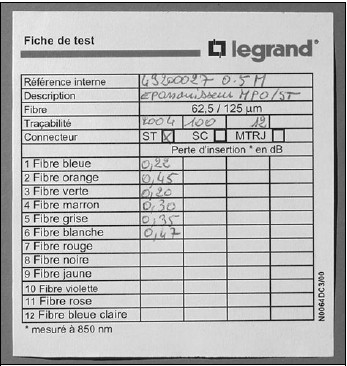 Fiche de test
legrand®
Référence interne 4320027 0.5 M
Description Epanouisseur MPO/ST
Fibre 62,5 / 125 µm
Traçabilité 2004 100 12
Connecteur ST SC MTRJ
Perte d'insertion * en dB
1 Fibre bleue 0,22
2 Fibre orange 0,45
3 Fibre verte 0,20
4 Fibre marron 0,30
5 Fibre grise 0,35
6 Fibre blanche 0,47
7 Fibre rouge
8 Fibre noire
9 Fibre jaune
10 Fibre violette
11 Fibre rose
12 Fibre bleue claire
* mesuré à 850 nm
N0064DC3/00